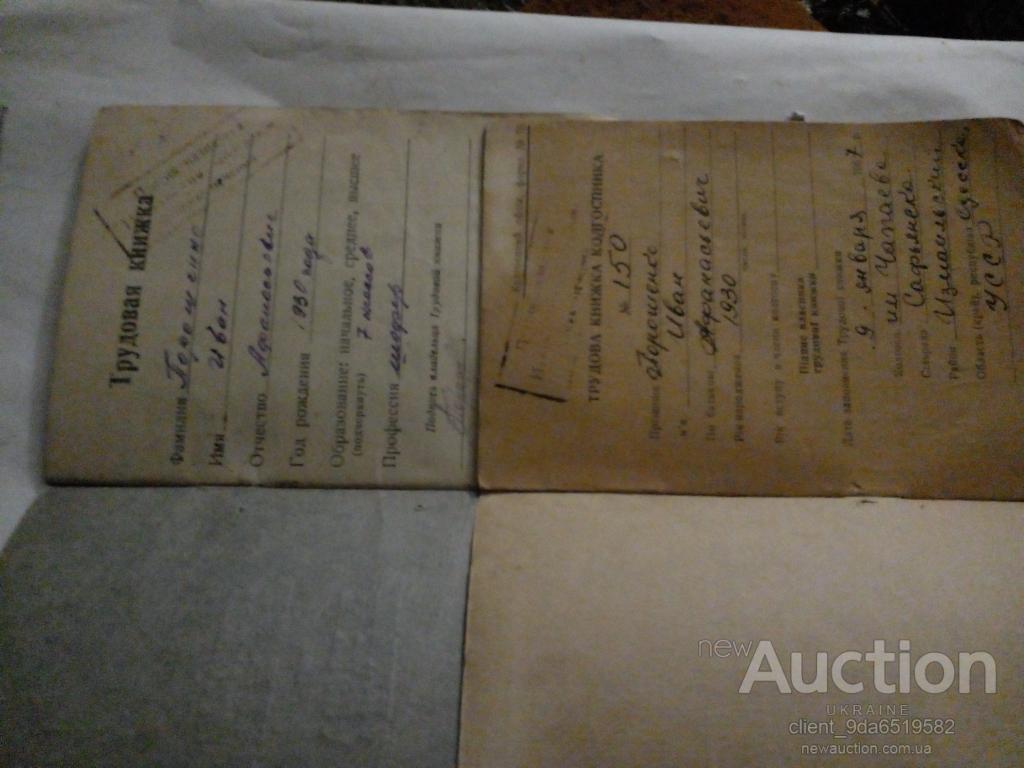 Трудовая книжка
Фамилия
Имя Иван
Отчество
Год рождения 1930 года
Образование: начальное, среднее, высшее
(подчеркнуть) 7 классов
Профессия шофер
Подпись владельца Трудовой книжки
ТРУДОВА КНИЖКА КОЛГОСПНИКА
№ 150
Прізвище
Ім'я Иван
По батькові Афанасьевич
Рік народження 1930
Рік вступу в члени колгоспу
Підпис власника
трудової книжки
Дата заповнення Трудової книжки
9 января
Чапаева
Сафьянская
Район Измаильский
Область (край), республіка Одесская
УССР
newAuction
UKRAINE
client_9da6519582
newauction.com.ua